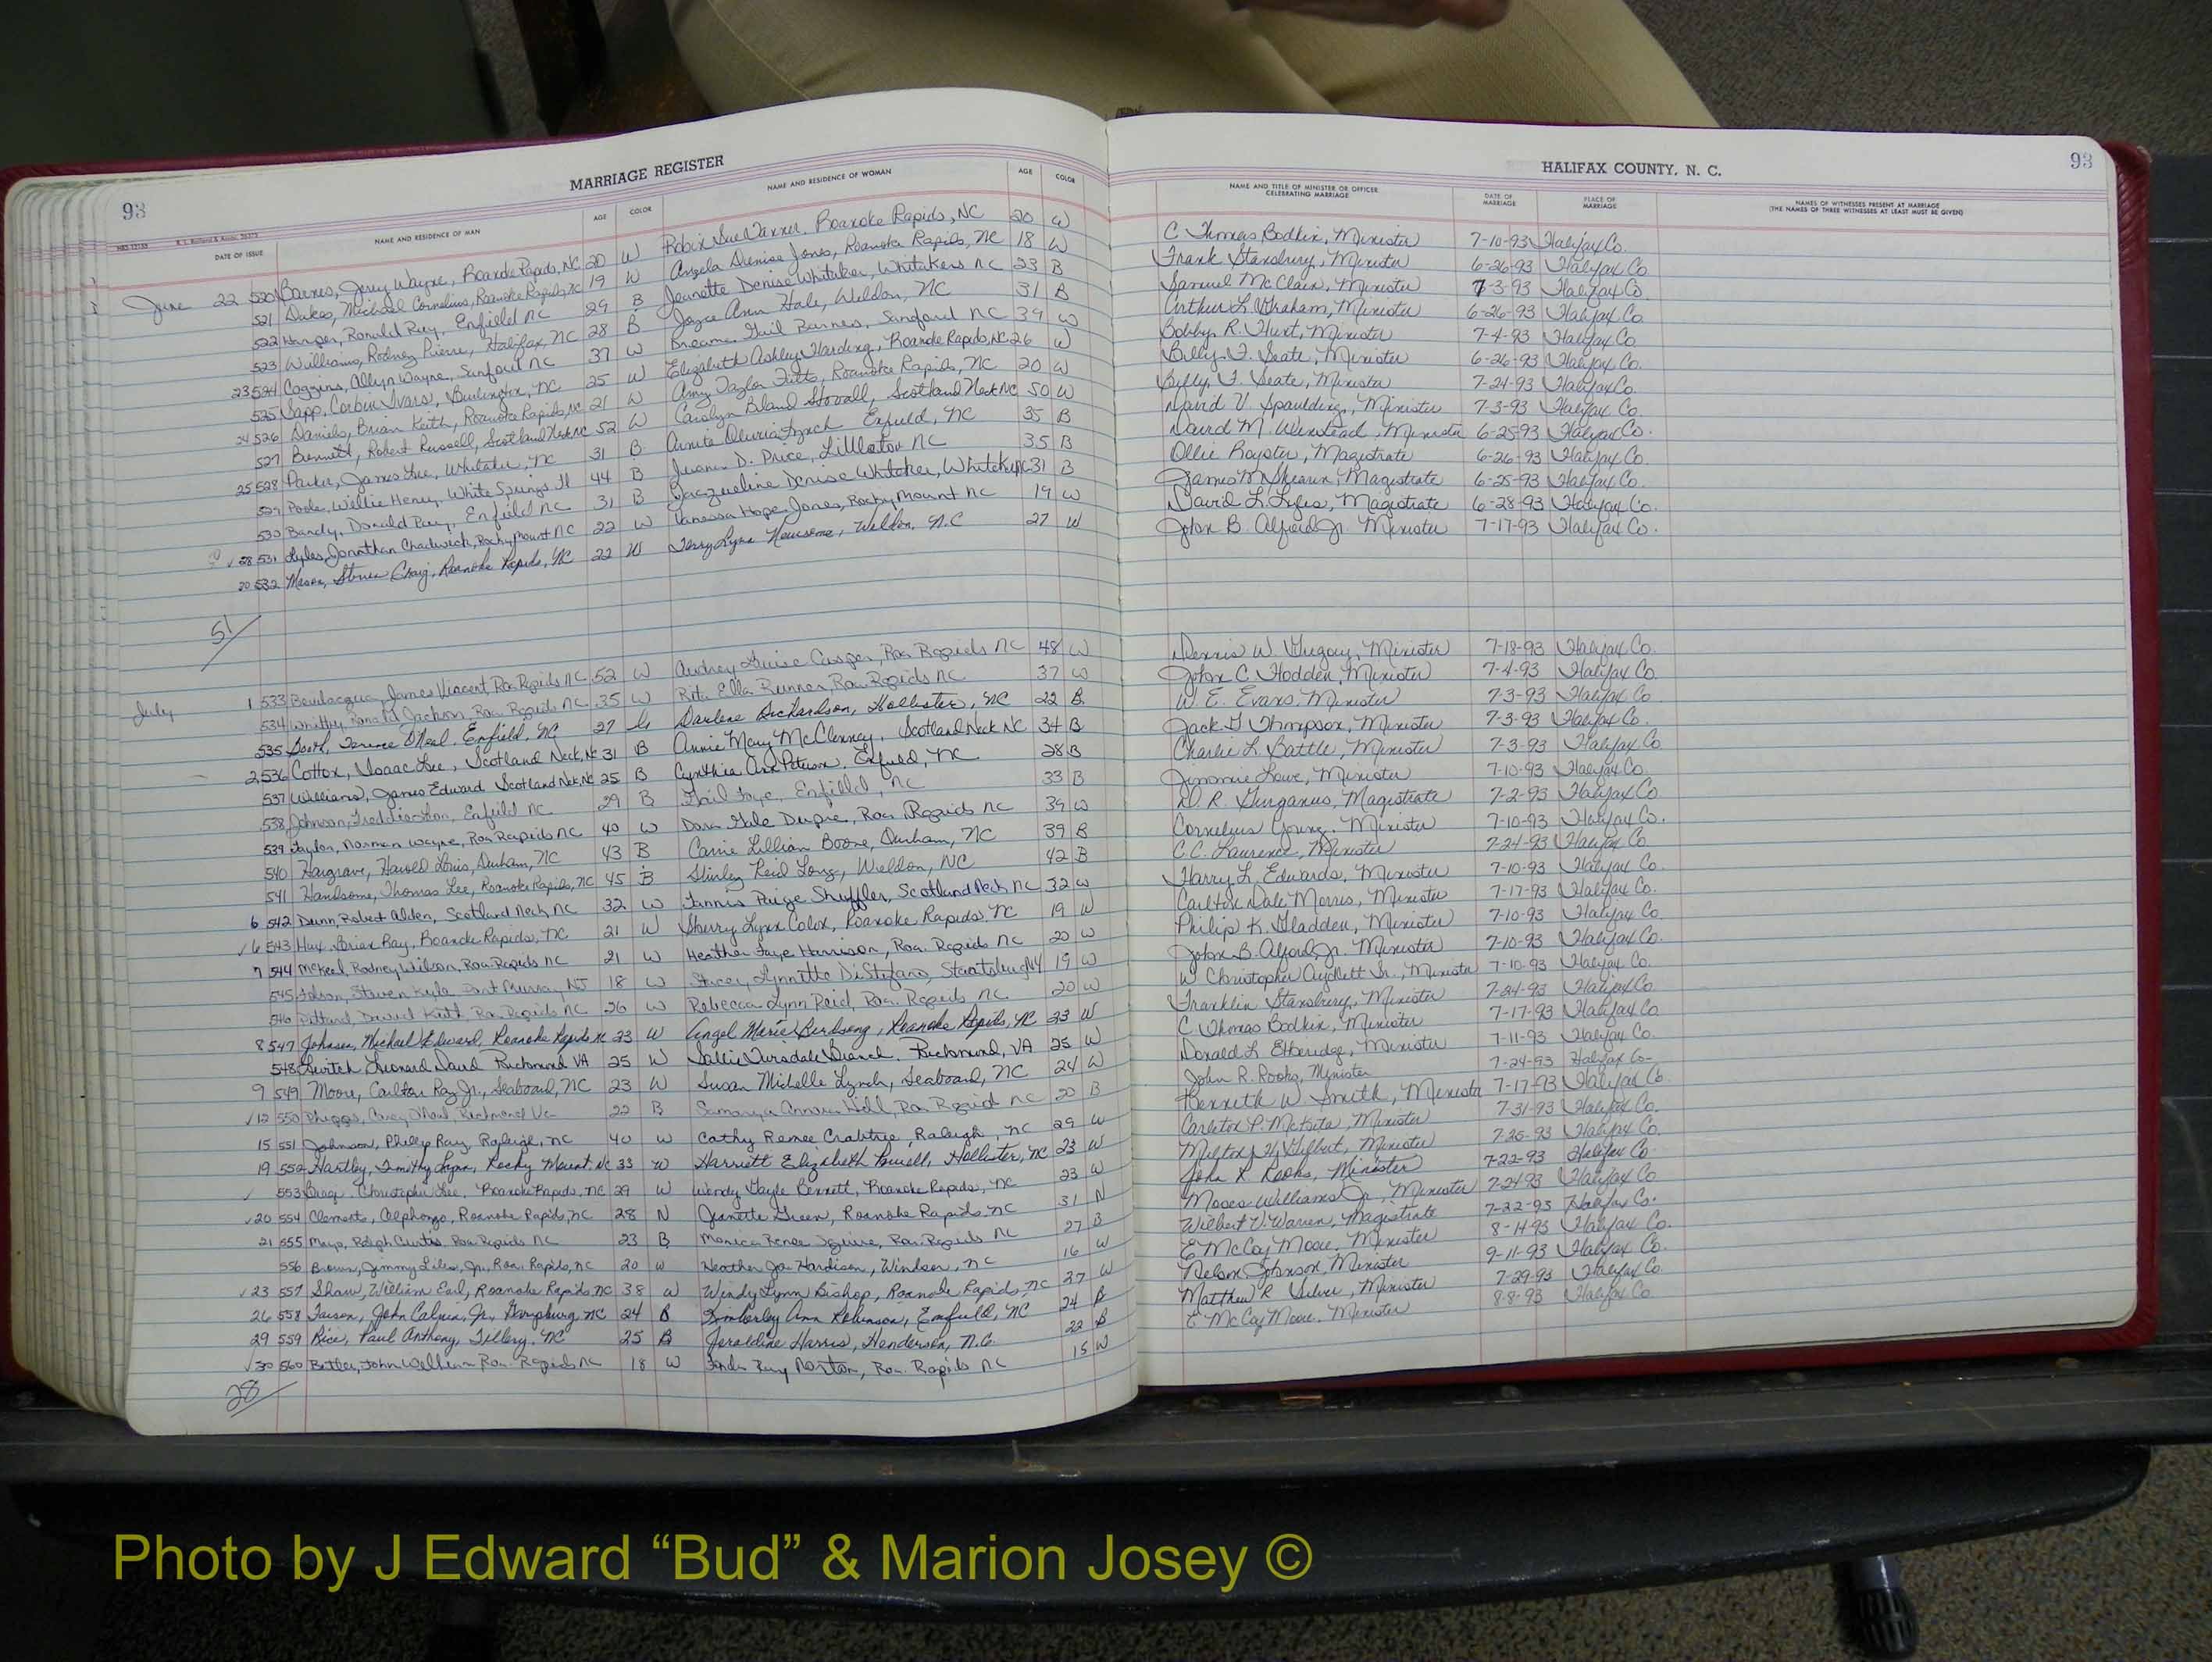 MARRIAGE REGISTER
93
DATE OF ISSUE NAME AND RESIDENCE OF MAN AGE COLOR NAME AND RESIDENCE OF WOMAN AGE COLOR
June 22 520 Barnes, Jerry Wayne, Roanoke Rapids, NC 20 W Robin Sue Roanoke Rapids, NC 20 W
521 Dukes, Michael Cornelius, Roanoke Rapids, NC 19 W Angela Denise Jones, Roanoke Rapids, NC 18 W
522 Harper, Ronald Ray, Enfield NC 29 B Jeanette Denise Whitaker, Whitakers NC 23 B
523 Williams, Rodney Pierre, Halifax, NC 28 B Joyce Ann Hale, Weldon, NC 31 B
23 524 Coggins, Allyn Wayne, Sanford NC 37 W Gail Barnes, Sanford NC 39 W
525 Sapp, Corbin Burlington, NC 25 W Elizabeth Ashley Harding, Roanoke Rapids, NC 26 W
24 526 Daniels, Brian Keith, Roanoke Rapids, NC 21 W Amy Taylor Roanoke Rapids, NC 20 W
527 Bennett, Robert Russell, Scotland Neck NC 52 W Carolyn Bland Stovall, Scotland Neck NC 50 W
25 528 Parker, James Lee, NC 31 B Lynch Enfield, NC 35 B
529 Poole, Willie Henry, White Springs, Fl 44 B D. Price, NC 35 B
530 Bandy, Donald Ray, Enfield NC 31 B Jacqueline Denise Whitaker, 31 B
28 531 Lyles, Jonathan Chadwick, Rocky Mount NC 22 W Vanessa Hope Jones, Rocky Mount NC 19 W
532 Mason, Steven Craig, Roanoke Rapids, NC 22 W Terry Lynn Newsome, Weldon, N.C 27 W
51
July 1 533 James Vincent Roa. Rapids NC 52 W Audrey Casper, Roa Rapids NC 48 W
534 Ronald Jackson Roa. Rapids NC 35 W Rita Ella Runner, Roa Rapids NC 37 W
535 O'Neal, Enfield, NC 27 Darlene Richardson, Hollister, NC 22 B
2 536 Isaac Lee, Scotland Neck, NC 31 B Annie Mary McClenney, Scotland Neck NC 34 B
537 Williams, James Edward Scotland Neck, NC 25 B Cynthia Ann Enfield, NC 28 B
538 Johnson, Enfield NC 29 B Gail Enfield, NC 33 B
539 Taylor, Norman Wayne, Roa Rapids NC 40 W Gale Dupre, Roa Rapids NC 39 W
540 Hargrave, Harold Louis, Durham, NC 43 B Carrie Lillian Boone, Durham, NC 39 B
541 Handsome, Thomas Lee, Roanoke Rapids, NC 45 B Shirley Reid Long, Weldon, NC 42 B
6 542 Dunn, Robert Alden, Scotland Neck NC 32 W Paige Shuffler, Scotland Neck NC 32 W
6 543 Hux, Brian Ray, Roanoke Rapids, NC 21 W Sherry Lynn Roanoke Rapids, NC 19 W
7 544 McKeel, Rodney Wilson, Roa Rapids NC 21 W Heather Faye Harrison, Roa. Rapids NC 20 W
545 Steven Kyle Port Murray NJ 18 W Stacey Lynnette DiStefano, Staatsburg NY 19 W
546 David Keith Roa Rapids NC 26 W Rebecca Lynn Reid, Roa. Rapids NC 20 W
8 547 Johnson, Michael Edward, Roanoke Rapids NC 23 W Angel Marie Birdsong, Roanoke Rapids, NC 23 W
548 Leonard David Richmond VA 25 W Sallie Richmond, VA 25 W
9 549 Moore, Carlton Ray Jr., Seaboard, NC 23 W Susan Michelle Lynch, Seaboard, NC 24 W
12 550 Corey Richmond Va 22 B Hill, Roa Rapids NC 20 B
15 551 Johnson, Phillip Ray, Raleigh, NC 40 W Cathy Renee Crabtree, Raleigh, NC 29 W
19 552 Hartley, Timothy Lynn, Rocky Mount NC 33 W Harriett Elizabeth Powell, Hollister, NC 23 W
553 Christopher Lee, Roanoke Rapids, NC 29 W Wendy Gayle Bennett, Roanoke Rapids, NC 23 W
20 554 Clements, Alphonzo, Roanoke Rapids, NC 28 N Jeanette Green, Roanoke Rapids, NC 31 N
21 555 Mayo, Ralph Curtis Roa Rapids NC 23 B Monica Renee Squire, Roa Rapids NC 27 B
556 Brown, Jimmy Jr., Roa. Rapids, NC 20 W Heather Jo Hardison, Windsor, NC 16 W
23 557 Shaw, William Earl, Roanoke Rapids NC 38 W Windy Lynn Bishop, Roanoke Rapids, NC 27 W
26 558 Faison, John Calvin, Jr., Garysburg, NC 24 B Kimberley Ann Robinson, Enfield, NC 24 B
29 559 Rice, Paul Anthony, Tillery, NC 25 B Jeraldine Harris, Henderson, N.C. 22 B
30 560 Butler, John William Roa. Rapids NC 18 W Kay Norton, Roa. Rapids NC 15 W
28
HALIFAX COUNTY, N. C.
93
NAME AND TITLE OF MINISTER OR OFFICER CELEBRATING MARRIAGE DATE OF MARRIAGE PLACE OF MARRIAGE NAMES OF WITNESSES PRESENT AT MARRIAGE
(THE NAMES OF THREE WITNESSES AT LEAST MUST BE GIVEN)
C Thomas Bodkin, Minister 7-10-93 Halifax Co.
Frank Stansbury, Minister 6-26-93 Halifax Co
Samuel McClain, Minister 7-3-93 Halifax Co
Arthur L. Graham, Minister 6-26-93 Halifax Co.
Bobby R. Hunt, Minister 7-4-93 Halifax Co.
Billy F. Seate, Minister 6-26-93 Halifax Co.
Billy F. Seate, Minister 7-24-93 Halifax Co.
David V. Spaulding, Minister 7-3-93 Halifax Co.
David M. Winstead, Minister 6-25-93 Halifax Co.
Ollie Royster, Magistrate 6-26-93 Halifax Co.
James M Shearin, Magistrate 6-25-93 Halifax Co.
David L. Magistrate 6-28-93 Halifax Co.
John B. Alford Jr. Minister 7-17-93 Halifax Co.
Dennis W. Gregory, Minister 7-18-93 Halifax Co.
John C. Hodden, Minister 7-4-93 Halifax Co.
W. E. Evans, Minister 7-3-93 Halifax Co
Jack G Thompson, Minister 7-3-93 Halifax Co.
Charlie L. Battle, Minister 7-3-93 Halifax Co
Jimmie Lowe, Minister 7-10-93 Halifax Co.
D. R. Gurganus, Magistrate 7-2-93 Halifax Co
Cornelius Young, Minister 7-10-93 Halifax Co.
C.C. Laurence, Minister 7-24-93 Halifax Co
Harry L. Edwards, Minister 7-10-93 Halifax Co.
Carlton Dale Morris, Minister 7-17-93 Halifax Co.
Philip K. Gladden, Minister 7-10-93 Halifax Co
John B. Alford, Jr. Minister 7-10-93 Halifax Co.
W Christopher Aydlett Sr., Minister 7-10-93 Halifax Co.
Franklin Stansbury, Minister 7-24-93 Halifax Co
C Thomas Bodkin, Minister 7-17-93 Halifax Co
Donald L Etheridge, Minister 7-11-93 Halifax Co.
John R. Rooks, Minister 7-24-93 Halifax Co-
Kenneth W. Smith, Minister 7-17-93 Halifax Co.
Carleton P. Minister 7-31-93 Halifax Co.
Milton H. Gilbert, Minister 7-25-93 Halifax Co.
John R. Rooks, Minister 7-22-93 Halifax Co.
Moses Williams Jr, Minister 7-24-93 Halifax Co
Wilbert V. Warren, Magistrate 7-22-93 Halifax Co.
E McCoy Moore, Minister 8-14-93 Halifax Co.
Nelson Johnson, Minister 9-11-93 Halifax Co.
Matthew R Silver, Minister 7-29-93 Halifax Co
E McCoy Moore, Minister 8-8-93 Halifax Co.
Photo by J Edward “Bud” & Marion Josey ©